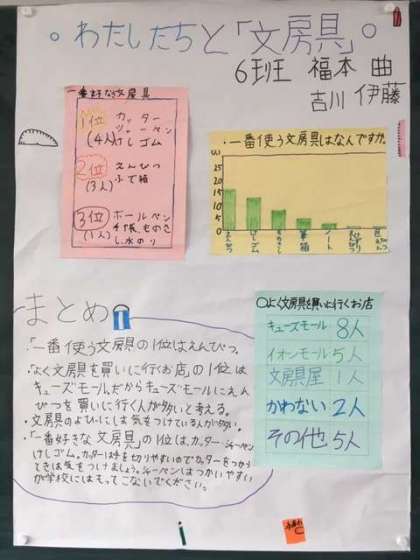 わたしたちと「文房具」
6班 福本 曲
吉川 伊藤
一番好きな文房具
1位 カッター
シャーペン
(4人) けしゴム
2位 えんぴつ
(3人) ふで箱
3位 ボールペン
ものさし
(1人) 水のり
・一番使う文房具はなんですか。
25
20
15
10
5
0
えんぴつ
けしゴム
ものさし
筆箱
ノート
○よく文房具を買いに行くお店
キューズモール 8人
イオンモール 5人
文房具屋 1人
かわない 2人
その他 5人
まとめ
・「一番使う文房具」の1位はえんぴつ。
・「よく文房具を買いに行くお店」の1位は
キューズモール。だからキューズモールにえん
ぴつを買いに行く人が多いと考える。
・文房具のよびには気をつけている人が多い。
・「一番好きな文房具」の1位は、カッター シャーペン
けしゴム。カッターは手を切りやすいのでカッターをつかう
ときは気をつけましょう。シャーペンはつかいやすい
が学校にはもってこないでください。